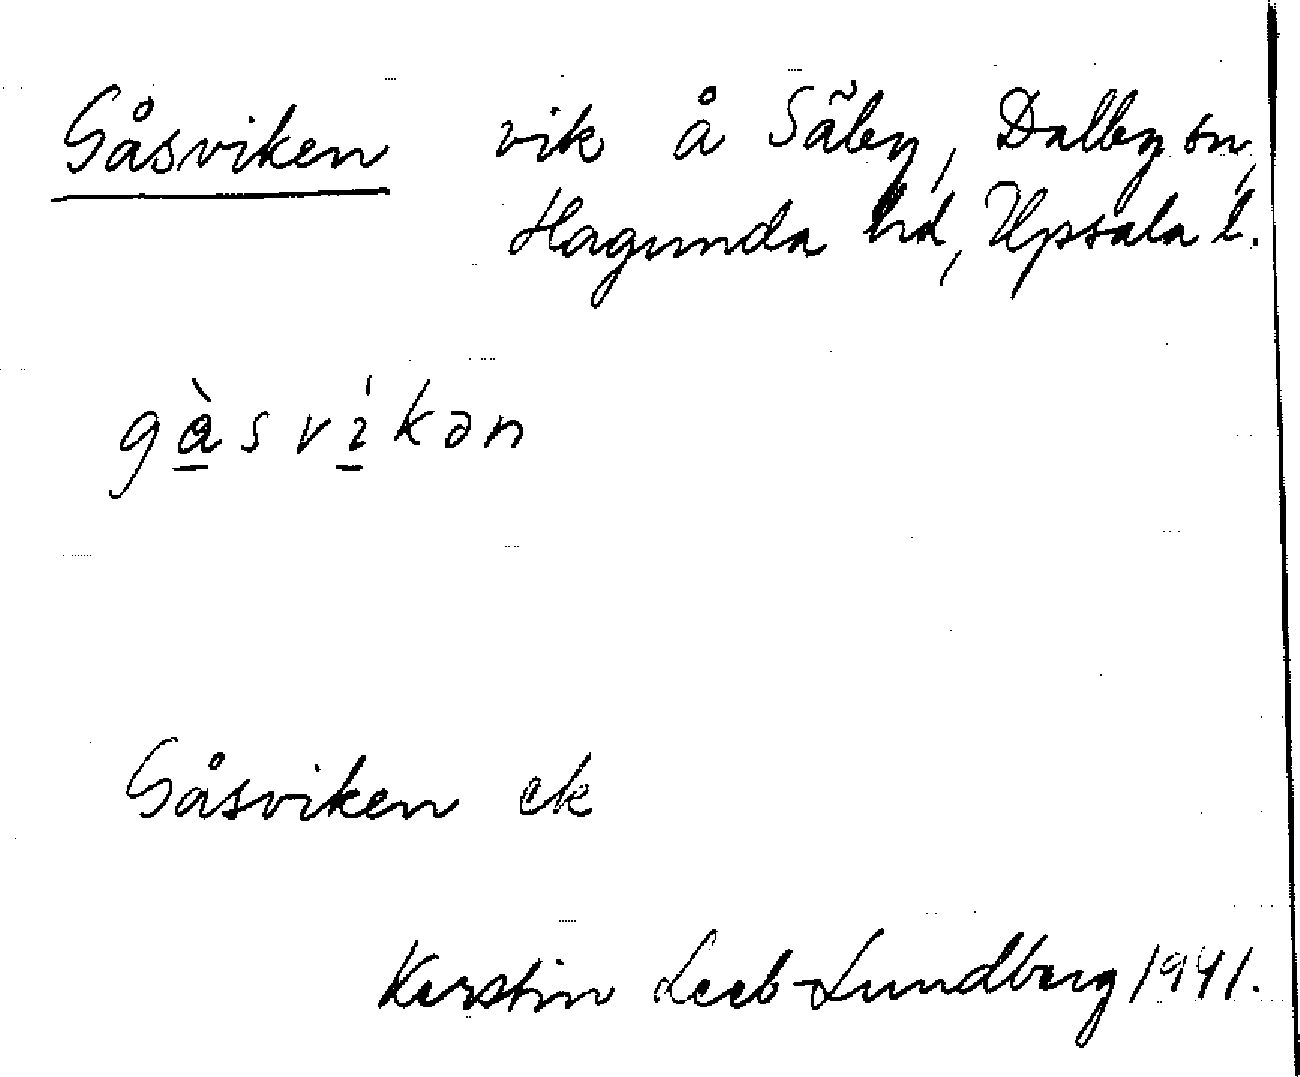 Gåsviken vik å Säby, Dalby sn,
Hagunda hd, Upsala l.
gàsvíkən
Gåsviken ek
Kerstin Leeb-Lundberg 1941.